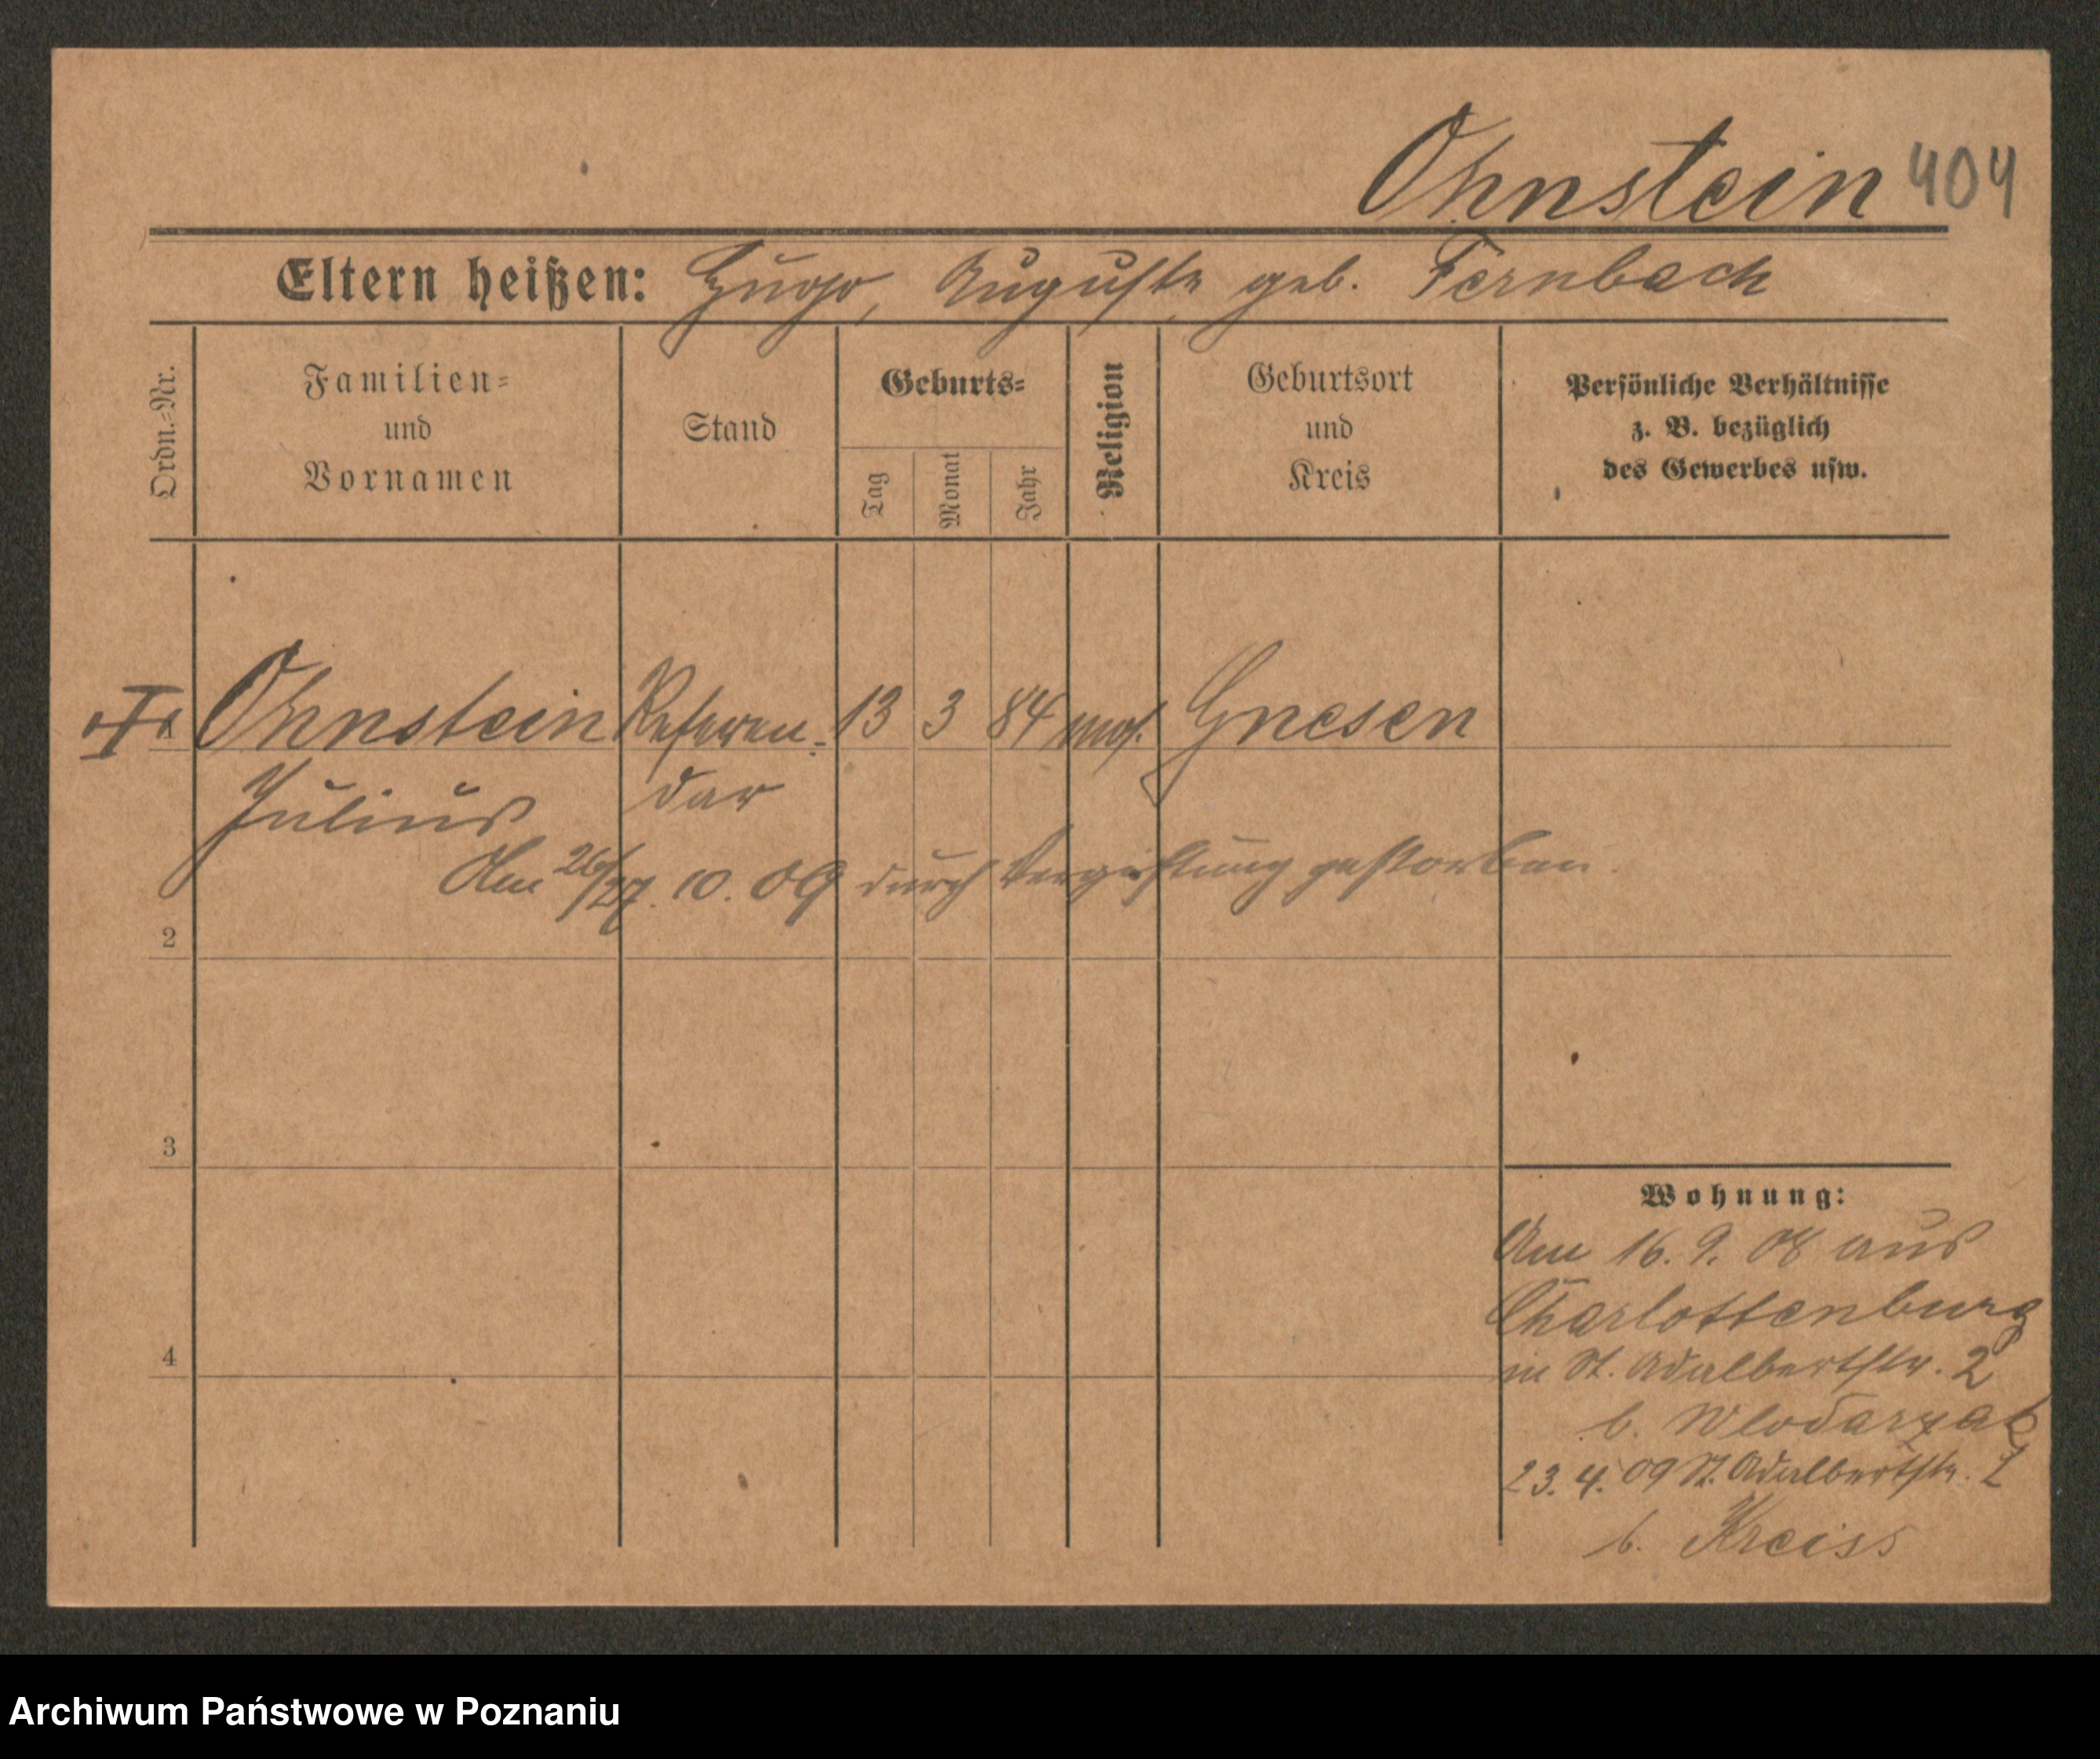 Ohnstein 404
Eltern heißen: Hugo, Auguste geb. Fernbach
Ordn.=Nr.
Familien=
und
Vornamen
Stand
Geburts=
Tag
Monat
Jahr
Religion
Geburtsort
und
Kreis
Persönliche Verhältnisse
z. B. bezüglich
des Gewerbes usw.
1 Ohnstein Referen= 13 3 84 mos. Gnesen
Julius dar
Am 26/27. 10. 09 durch Vergiftung gestorben
2
3
4
Wohnung:
Am 16. 9. 08 aus
Charlottenburg
in St. Adalbertstr. 2
b. Wlodarzak
23. 4. 09 St. Adalbertstr.
b. Kreiss
Archiwum Państwowe w Poznaniu